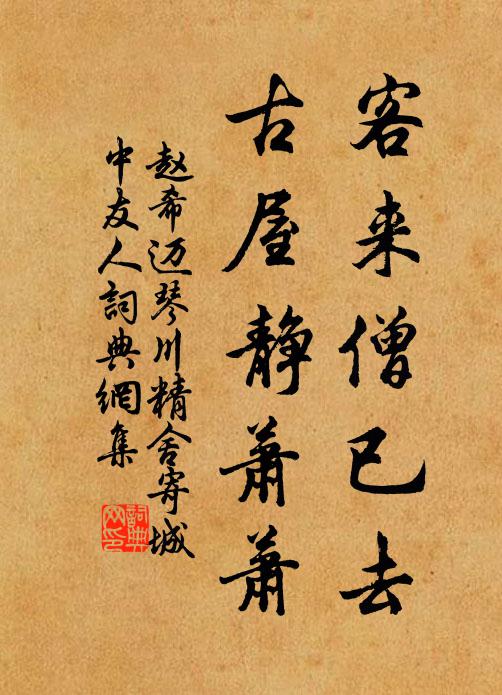 客来僧已去
古屋静萧萧
赵希迈琴川精舍寄城
中友人詞典網集
詞典网印